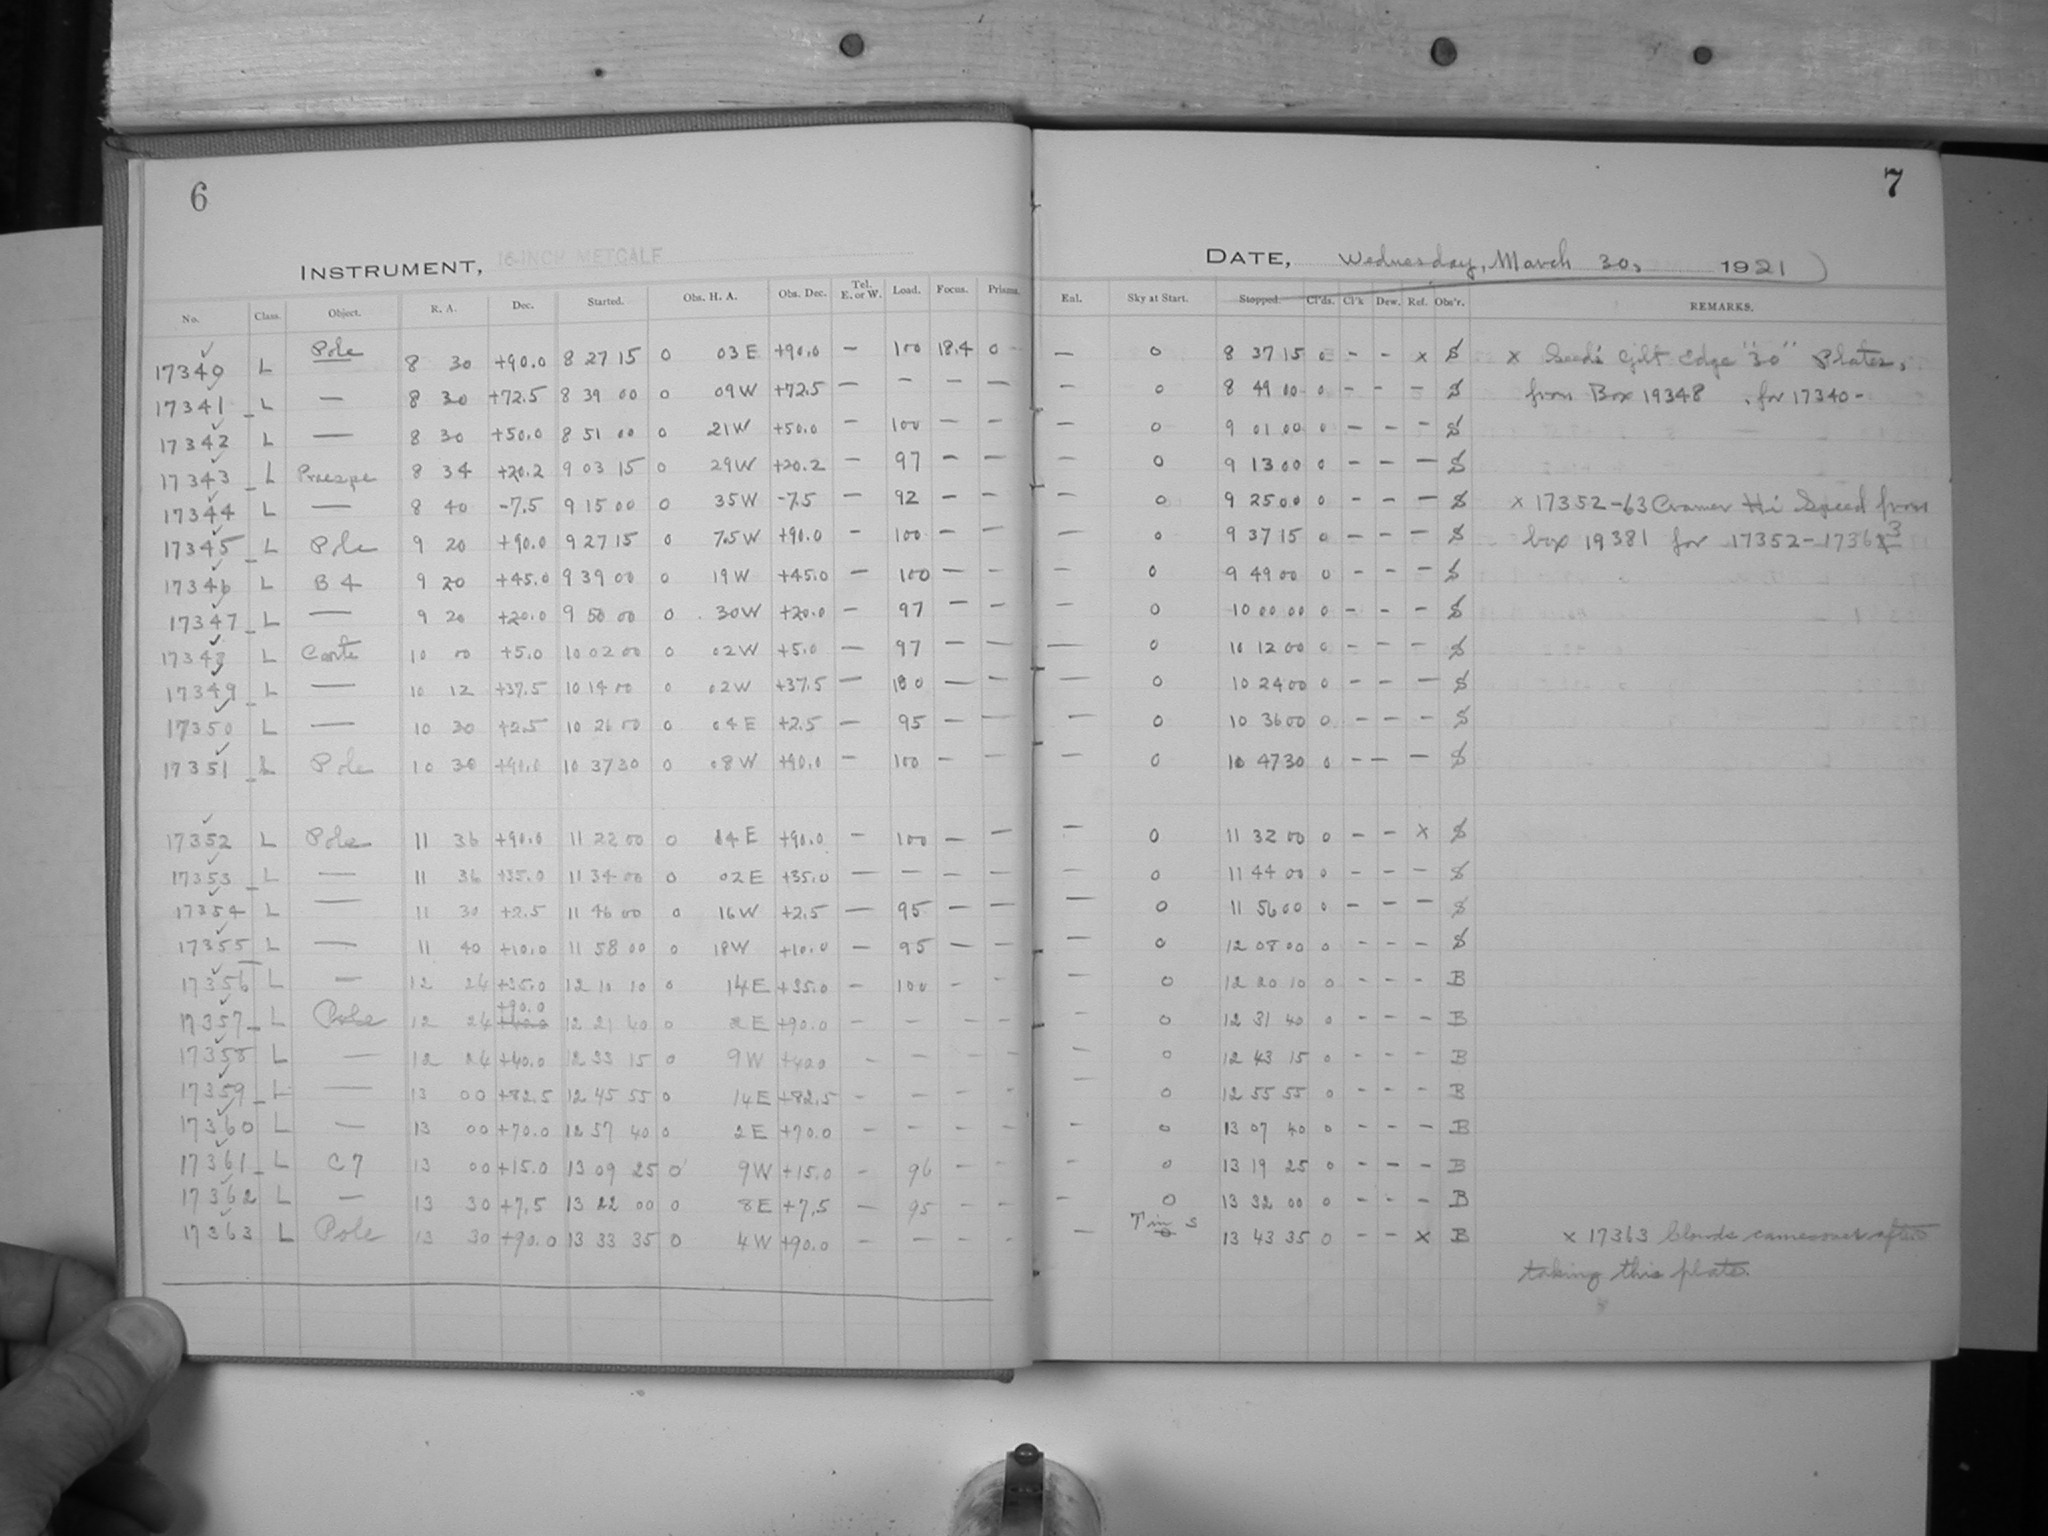 6
INSTRUMENT, 16-INCH METCALF
No. Class. Object. R. A. Dec. Started. Obs. H. A. Obs. Dec. Tel. E. or W. Load. Focus. Prisms.
17340 L Pole 8 30 +90.0 8 27 15 0 03 E +90.0 — 100 18.4 0
17341 L — 8 30 +72.5 8 39 00 0 09 W +72.5 — — — —
17342 L — 8 30 +50.0 8 51 00 0 21 W +50.0 — 100 — —
17343 L Praespe 8 34 +20.2 9 03 15 0 29 W +20.2 — 97 — —
17344 L — 8 40 -7.5 9 15 00 0 35 W -7.5 — 92 — —
17345 L Pole 9 20 +90.0 9 27 15 0 7.5 W +90.0 — 100 — —
17346 L B 4 9 20 +45.0 9 39 00 0 19 W +45.0 — 100 — —
17347 L — 9 20 +20.0 9 50 00 0 30 W +20.0 — 97 — —
17348 L 10 00 +5.0 10 02 00 0 02 W +5.0 — 97 — —
17349 L — 10 12 +37.5 10 14 00 0 02 W +37.5 — 100 — —
17350 L — 10 30 +2.5 10 26 00 0 04 E +2.5 — 95 — —
17351 L Pole 10 30 +90.0 10 37 30 0 08 W +90.0 — 100 — —
17352 L Pole 11 36 +90.0 11 22 00 0 14 E +90.0 — 100 — —
17353 L — 11 36 +35.0 11 34 00 0 02 E +35.0 — — — —
17354 L — 11 30 +2.5 11 46 00 0 16 W +2.5 — 95 — —
17355 L — 11 40 +10.0 11 58 00 0 18 W +10.0 — 95 — —
17356 L — 12 24 +35.0 12 10 10 0 14 E +35.0 — 100 - -
17357 L Pole 12 24 +90.0 12 21 40 0 2 E +90.0 - - - -
17358 L — 12 24 +40.0 12 33 15 0 9 W +40.0 - - - -
17359 L — 13 00 +82.5 12 45 55 0 14 E +82.5 - - - -
17360 L — 13 00 +70.0 12 57 40 0 2 E +70.0 - - - -
17361 L C 7 13 00 +15.0 13 09 25 0 9 W +15.0 - 96 - -
17362 L — 13 30 +7.5 13 22 00 0 8 E +7.5 - 95 - -
17363 L Pole 13 30 +90.0 13 33 35 0 4 W +90.0 - - - -
7
DATE, Wednesday, March 30, 1921
Exl. Sky at Start. Stopped. Cl'ds. Cl'k Dew. Ref. Obs'r. REMARKS.
— 0 8 37 15 0 - - x S x Seed's Gilt Edge "30" Plates,
— 0 8 49 00 0 - - - S from Box 19348 , for 17340 -
— 0 9 01 00 0 - - - S
— 0 9 13 00 0 - - - S
— 0 9 25 00 0 - - - S x 17352-63 Cramer Hi Speed from
— 0 9 37 15 0 - - - S box 19381 for 17352-17363
— 0 9 49 00 0 - - - S
— 0 10 00 00 0 - - - S
— 0 10 12 00 0 - - - S
— 0 10 24 00 0 - - - S
— 0 10 36 00 0 - - - S
— 0 10 47 30 0 - - - S
— 0 11 32 00 0 - - x S
— 0 11 44 00 0 - - - S
— 0 11 56 00 0 - - - S
— 0 12 08 00 0 - - - S
— 0 12 20 10 0 - - - B
- 0 12 31 40 0 - - - B
- 0 12 43 15 0 - - - B
— 0 12 55 55 0 - - - B
- 0 13 07 40 0 - - - B
- 0 13 19 25 0 - - - B
- 0 13 32 00 0 - - - B
- 13 43 35 0 - - x B x 17363 Clouds came over after
taking this plate.